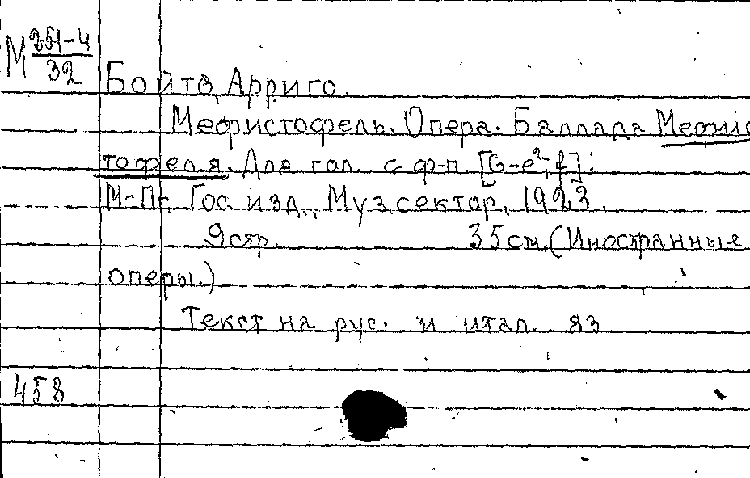 М 251-4
32
Бойто, Арриго.
Мефистофель. Опера. Баллада Мефис
тофеля. Для гол. с ф-п. [G-e², f].
М-Пг, Гос. изд., Муз. сектор, 1923.
9 стр. 35 см. (Иностранные
оперы.)
Текст на рус. и итал. яз
458